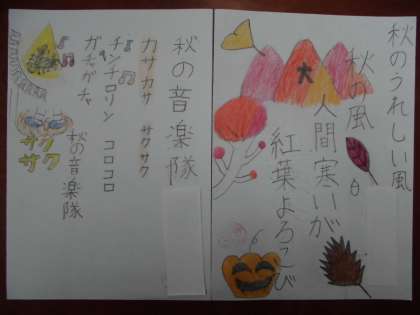 秋のうれしい風
秋の風
人間寒いが
紅葉よろこび
大
秋の音楽隊
カサカサ サクサク
チンチロリン コロコロ
ガチャガチャ
秋の音楽隊
サク
サク